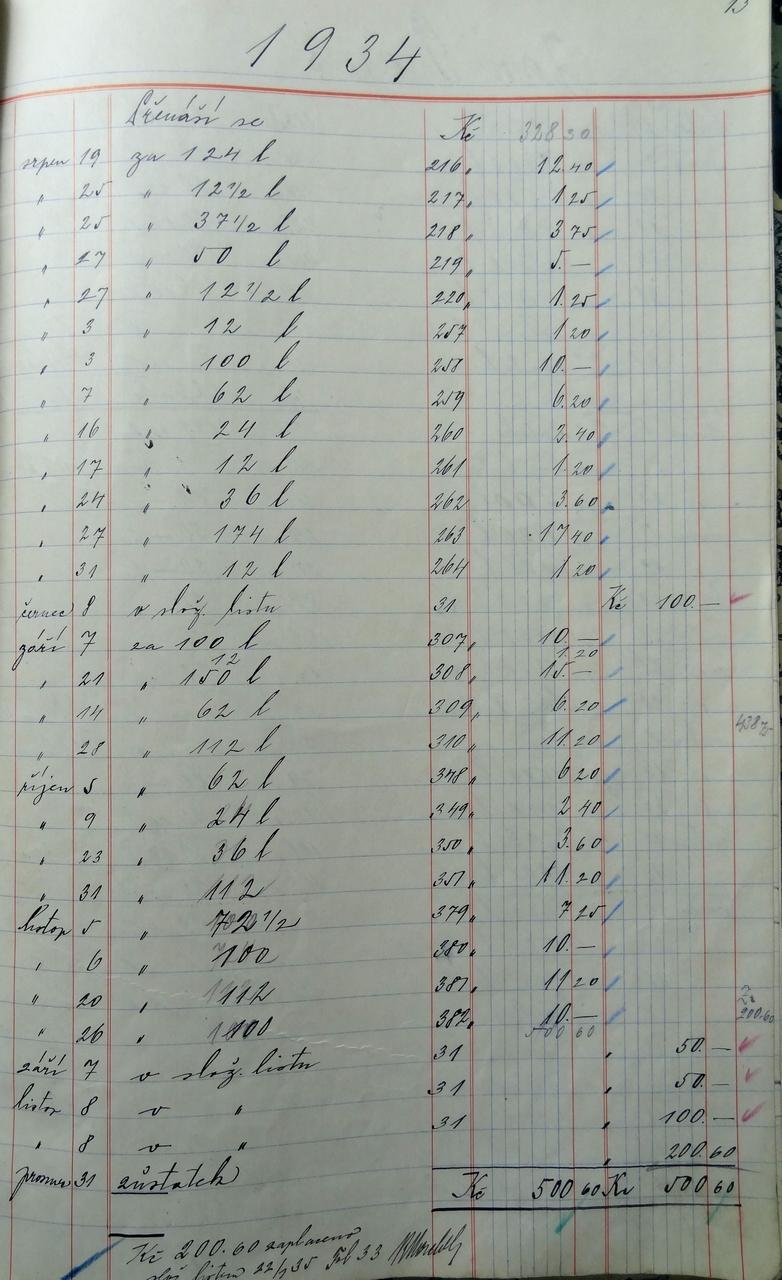 13
1934
Přenáší se Kč 328 30
srpen 19 za 124 l 216 „ 12.40
„ 25 „ 12 1/2 l 217 „ 1 25
„ 25 „ 37 1/2 l 218 „ 3 75
„ 27 „ 50 l 219 „ 5.—
„ 27 „ 12 1/2 l 220 „ 1.25
„ 3 „ 12 l 257 1 20
„ 3 „ 100 l 258 10.—
„ 7 „ 62 l 259 6.20
„ 16 „ 24 l 260 2.40
„ 17 „ 12 l 261 1.20
„ 24 „ 36 l 262 3.60
„ 27 „ 174 l 263 17 40
„ 31 „ 12 l 264 1 20
červec 8 v slož. listu 31 Kč 100.—
září 7 za 100 l 307 „ 10.—
12 1.20
„ 21 „ 150 l 308 „ 15.—
„ 14 „ 62 l 309 „ 6.20
„ 28 „ 112 l 310 „ 11.20
říjen 5 „ 62 l 348 „ 6 20
„ 9 „ 24 l 349 „ 2 40
„ 23 „ 36 l 350 „ 3.60
„ 31 „ 112 351 „ 11.20
listop 5 „ 72 1/2 379 „ 7 25
„ 6 „ 100 380 „ 10.—
„ 20 „ 112 381 „ 11 20
„ 26 „ 100 382 „ 10.—
500 60
200.60
září 7 v slož. listu 31 „ 50.—
listop 8 v „ 31 „ 50.—
„ 8 v „ 31 „ 100.—
„ 200.60
prosinec 31 zůstatek Kč 500 60 Kč 500 60
Kč 200.60 zaplaceno
slož. listem 22/1 35 Fol 33